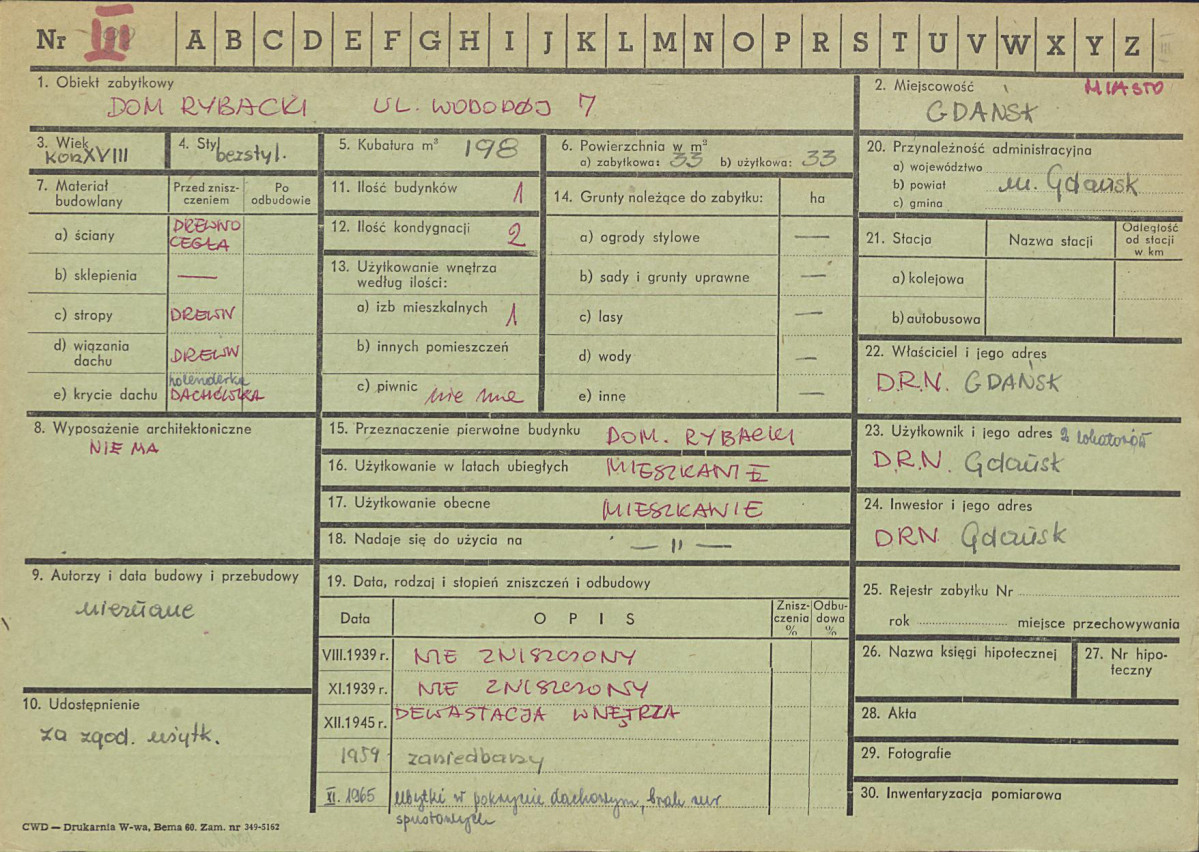 Nr III A B C D E F G H I J K L M N O P R S T U V W X Y Z
1. Obiekt zabytkowy
DOM RYBACKI UL. WODOPÓJ 7
2. Miejscowość MIASTO
GDAŃSK
3. Wiek
XVIII
4. Styl
bezstyl.
5. Kubatura m³ 198
6. Powierzchnia w m²
a) zabytkowa: 33 b) użytkowa: 33
7. Materiał budowlany
Przed zniszczeniem
Po odbudowie
a) ściany DREWNO
CEGŁA
b) sklepienia —
c) stropy DREWN
d) wiązania dachu DREWN
e) krycie dachu holenderka
DACHÓWKA
8. Wyposażenie architektoniczne
NIE MA
9. Autorzy i data budowy i przebudowy
nieznane
10. Udostępnienie
za zgod. użytk.
CWD — Drukarnia W-wa, Bema 60. Zam. nr 349-5162
11. Ilość budynków 1
12. Ilość kondygnacji 2
13. Użytkowanie wnętrza
według ilości:
a) izb mieszkalnych 1
b) innych pomieszczeń
c) piwnic nie ma
14. Grunty należące do zabytku: ha
a) ogrody stylowe —
b) sady i grunty uprawne —
c) lasy —
d) wody —
e) inne —
15. Przeznaczenie pierwotne budynku DOM. RYBACKI
16. Użytkowanie w latach ubiegłych MIESZKANIE
17. Użytkowanie obecne MIESZKANIE
18. Nadaje się do użycia na — " —
19. Data, rodzaj i stopień zniszczeń i odbudowy
Data OPIS Zniszczenia % Odbudowa %
VIII.1939 r. NIE ZNISZCZONY
XI.1939 r. NIE ZNISZCZONY
XII.1945 r. DEWASTACJA WNĘTRZA
1959 zaniedbany
XI. 1965 Ubytki w pokryciu dachowym, brak rur
spustowych
20. Przynależność administracyjna
a) województwo
b) powiat m. Gdańsk
c) gmina
21. Stacja Nazwa stacji Odległość od stacji w km
a) kolejowa
b) autobusowa
22. Właściciel i jego adres
D.R.N. GDAŃSK
23. Użytkownik i jego adres 2 lokatorów
D.R.N. Gdańsk
24. Inwestor i jego adres
DRN Gdańsk
25. Rejestr zabytku Nr
rok miejsce przechowywania
26. Nazwa księgi hipotecznej
27. Nr hipoteczny
28. Akta
29. Fotografie
30. Inwentaryzacja pomiarowa